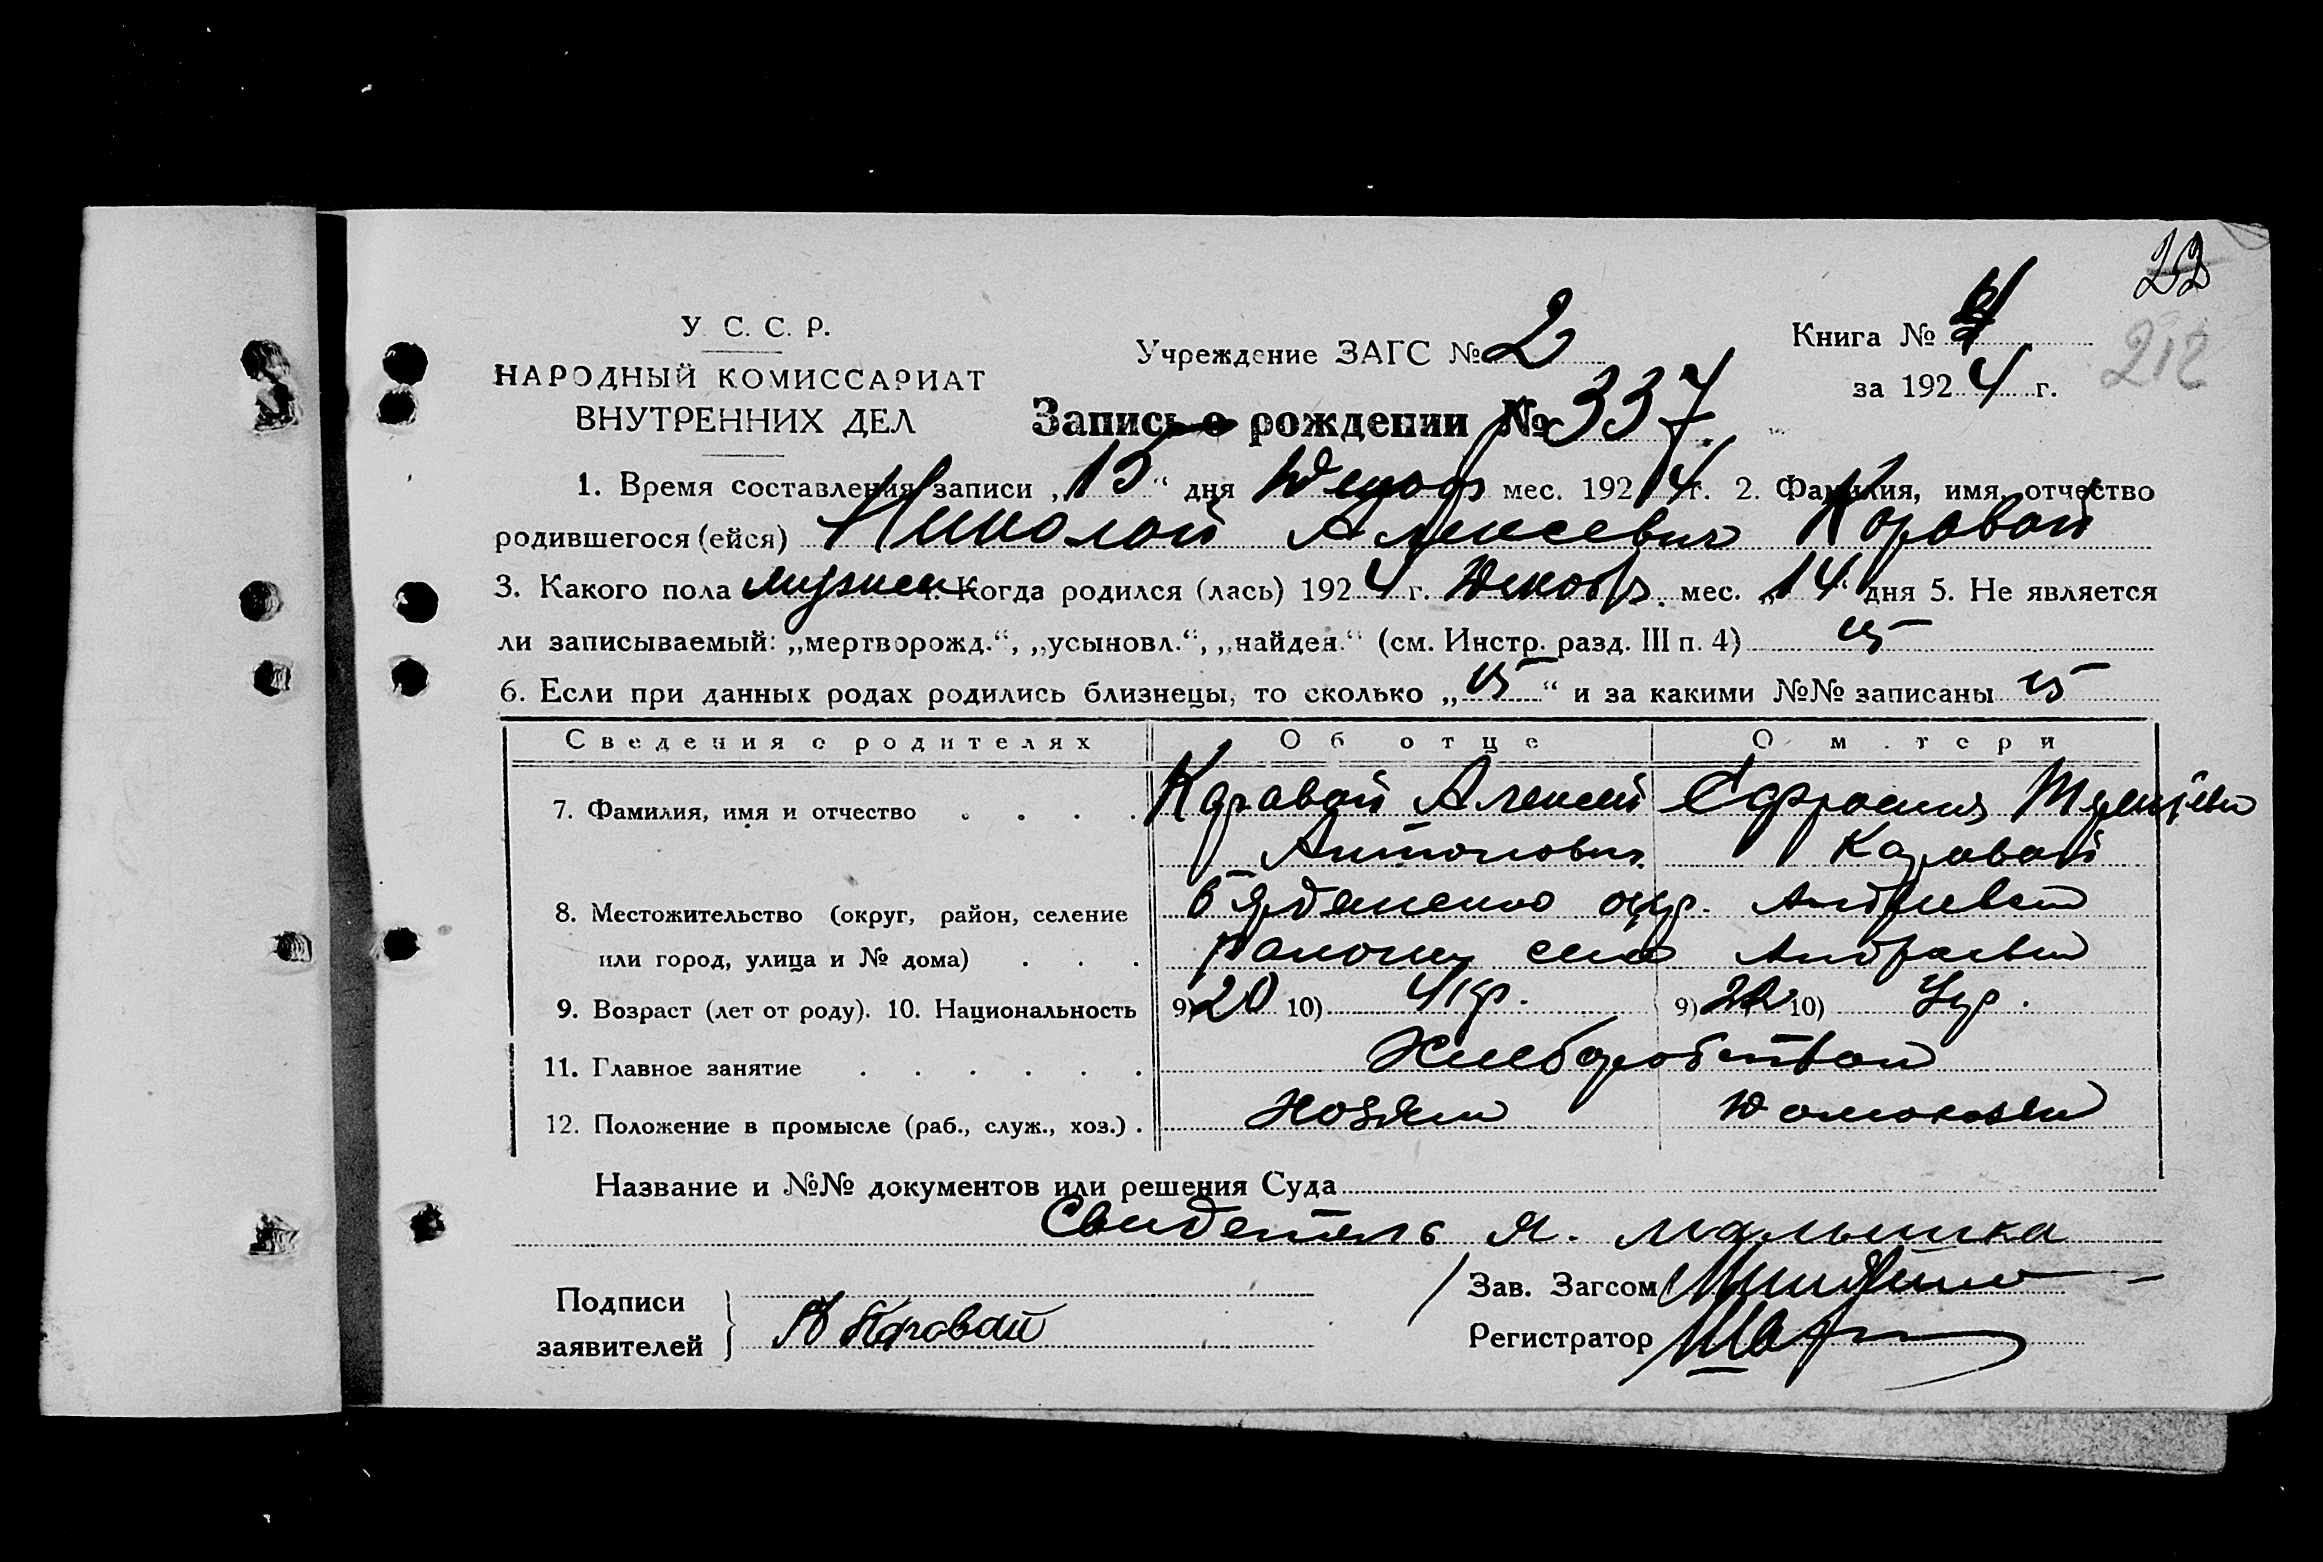 22
212
У. С. С. Р.
НАРОДНЫЙ КОМИССАРИАТ
ВНУТРЕННИХ ДЕЛ
Учреждение ЗАГС № 2
Книга №
за 1924 г.
Запись о рождении № 337
1. Время составления записи „15“ дня Декабр мес. 1924 г. 2. Фамилия, имя, отчество
родившегося (ейся) Николай Алексеевич Коравай
3. Какого пола мужск 4. Когда родился (лась) 1924 г. Декабр. мес. „14“ дня 5. Не является
ли записываемый: „мертворожд.“, „усыновл.“, „найден.“ (см. Инстр. разд. III п. 4)
6. Если при данных родах родились близнецы, то сколько „ “ и за какими №№ записаны
Сведения о родителях Об отце О матери
7. Фамилия, имя и отчество . . . . Каравай Алексей Ефросиния
Антонович Каравай
8. Местожительство (округ, район, селение Бердянского окр. Андреевки
или город, улица и № дома) . . . району село Андреевки
9. Возраст (лет от роду). 10. Национальность 9) 20 10) Укр. 9) 22 10) Укр.
11. Главное занятие . . . . . . Хлеборобством
12. Положение в промысле (раб., служ., хоз.) . Хозяин Домохозяй
Название и №№ документов или решения Суда
Свидетель Я. Малышка
Подписи
заявителей } А Каравай
Зав. Загсом
Регистратор